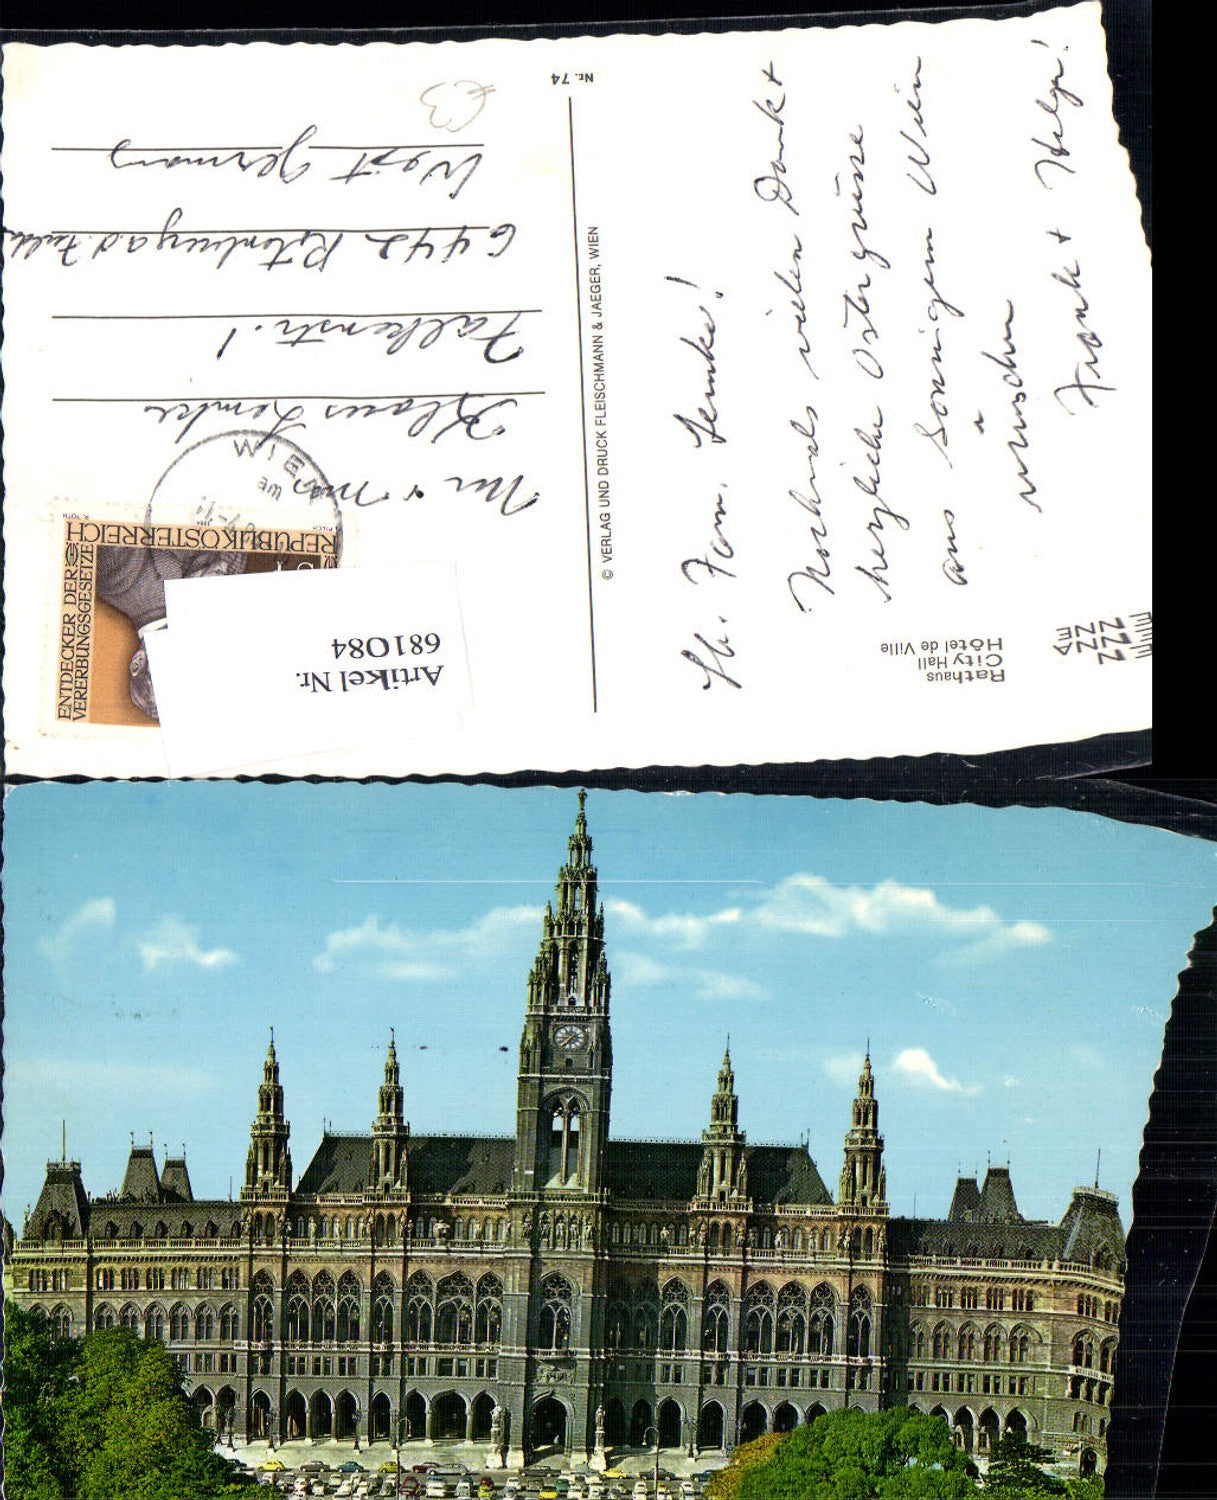 Lb. Fam. Lemke!
Nochmals vielen Dank +
herzliche Ostergrüsse
aus Sonnigem Wien
wünschen
Frank + Helga!
Rathaus
City Hall
Hôtel de Ville
© VERLAG UND DRUCK FLEISCHMANN & JAEGER, WIEN
Nr. 74
Klaus Lemke
Falkenstr. 1
6442 Rotenburg a d Fulda
West Germany
€3
WIEN
REPUBLIK ÖSTERREICH
ENTDECKER DER
VERERBUNGSGESETZE
Artikel Nr.
681084